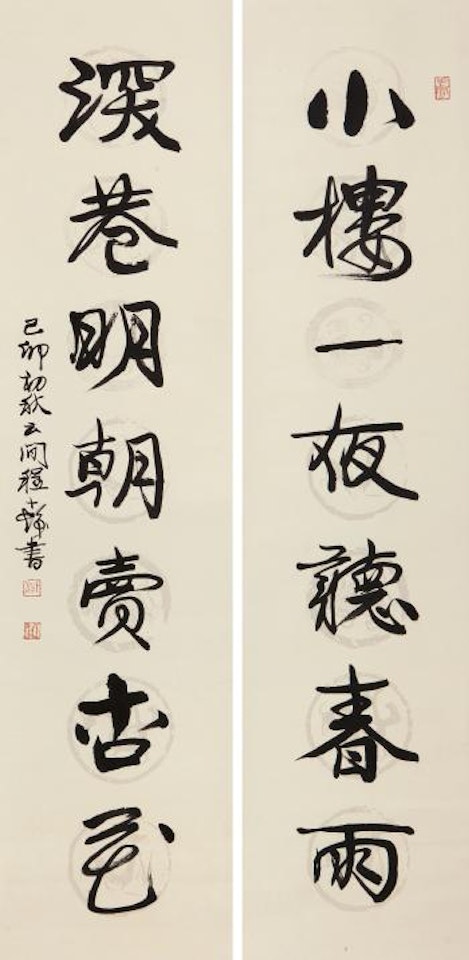 小樓一夜聽春雨
深巷明朝賣杏花
己卯初秋云間程十髮書